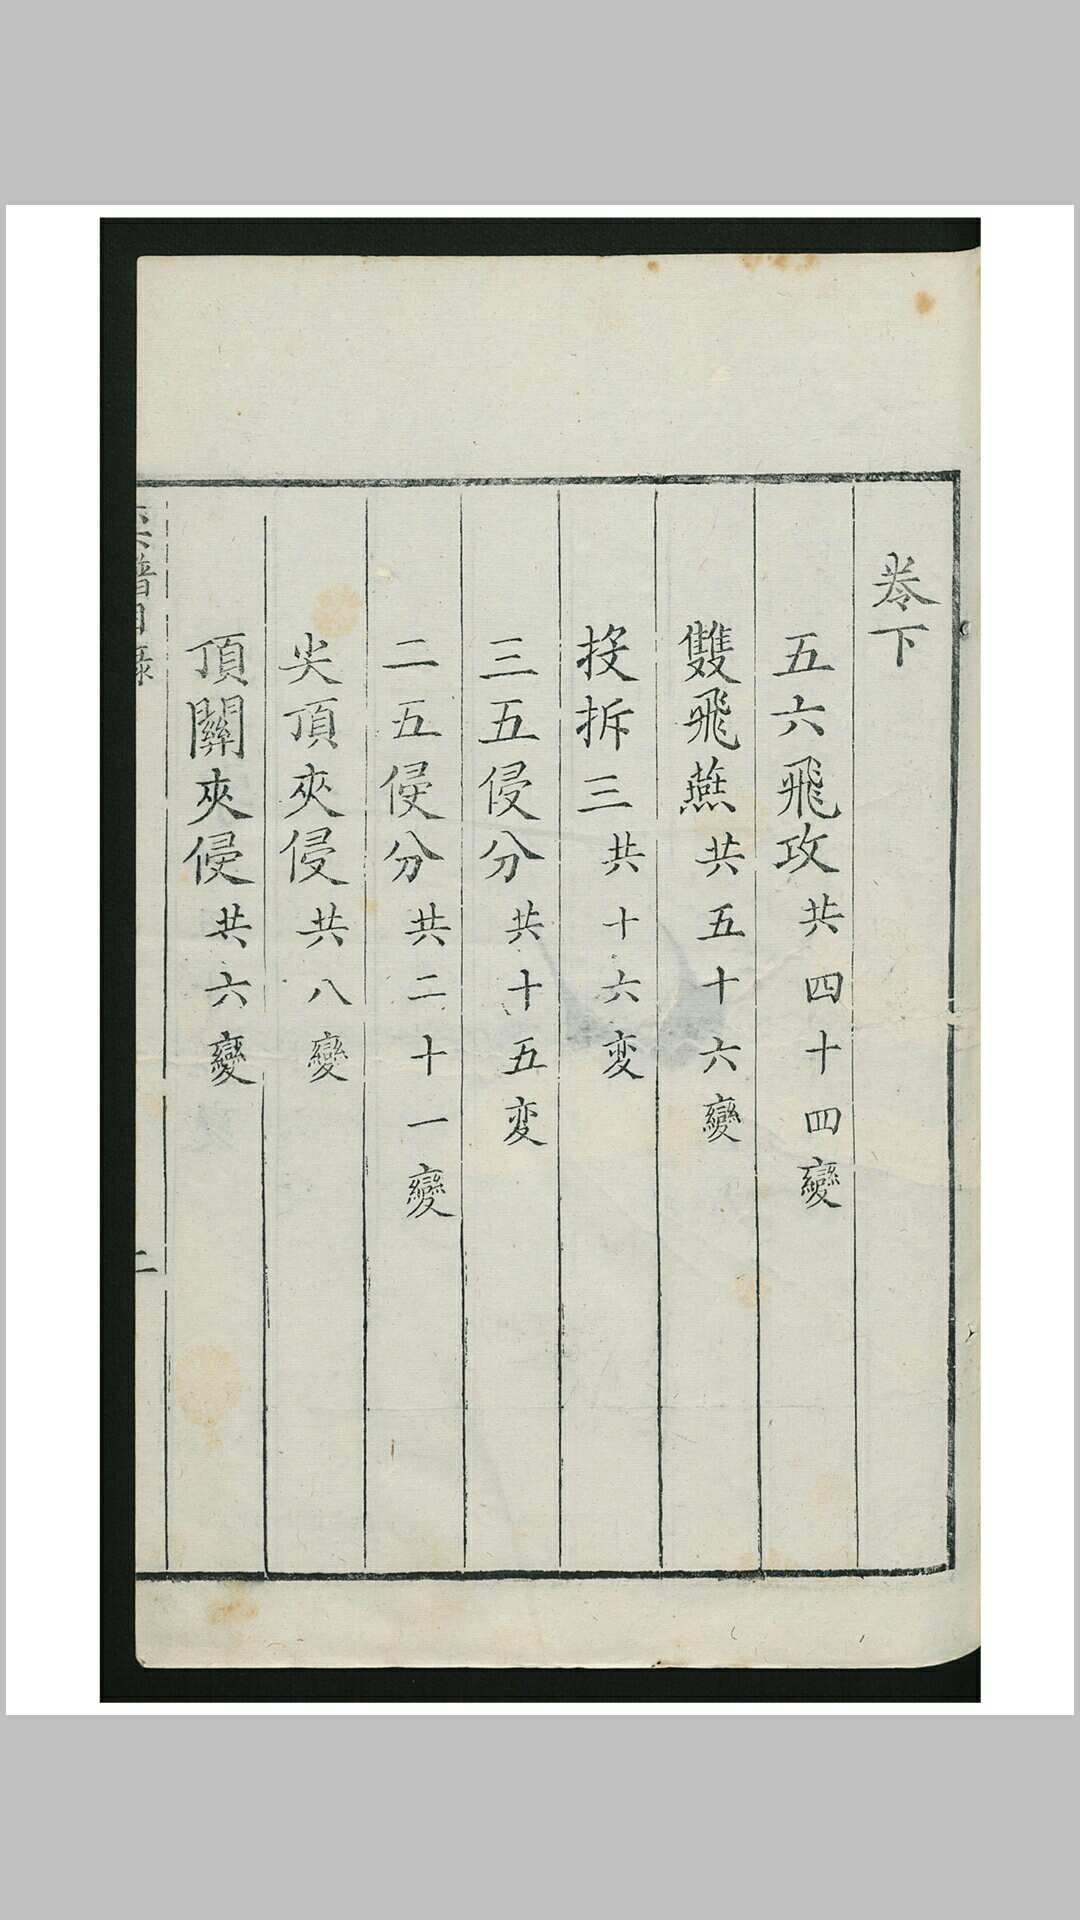 卷下
五六飛攻共四十四變
雙飛燕共五十六變
投拆三共十六变
三五侵分共十五变
二五侵分共二十一變
尖頂夾侵共八變
頂關夾侵共六變
譜目錄
二